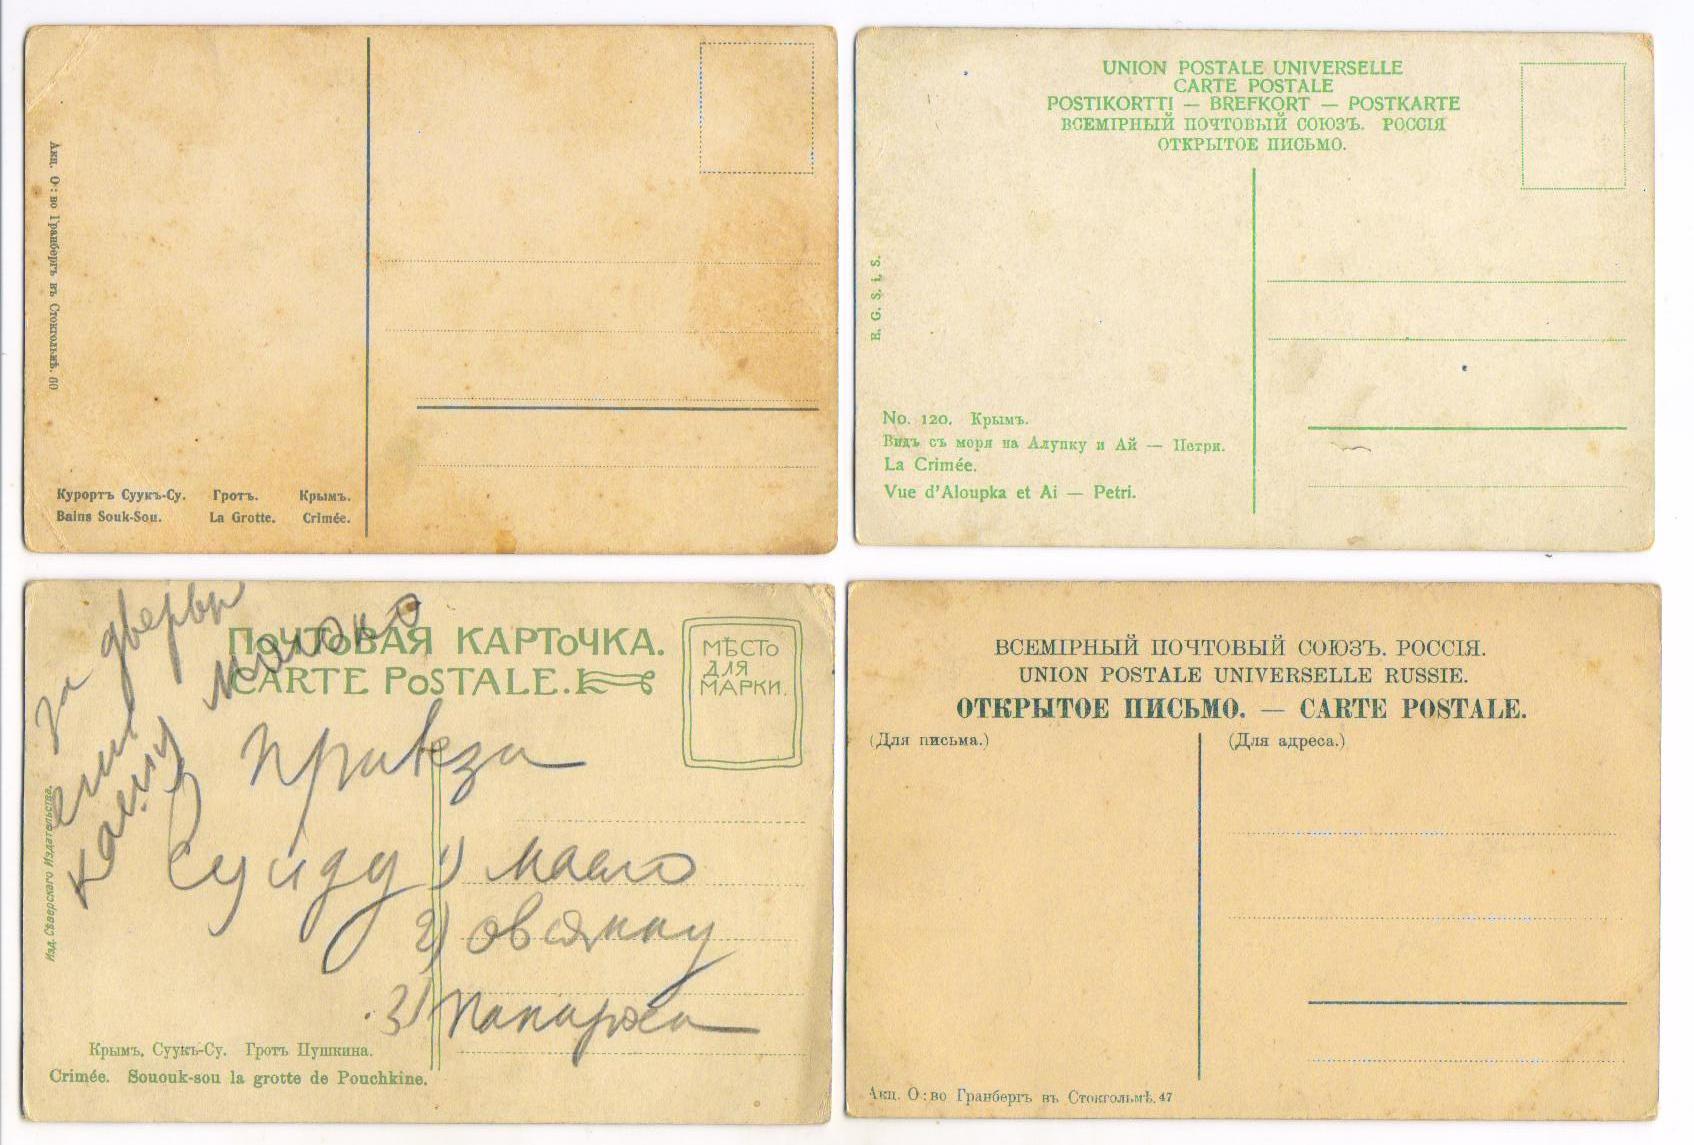 Акц. О:во Гранбергъ въ Стокгольмѣ. 60
Курортъ Суукъ-Су. Гротъ. Крымъ.
Bains Souk-Sou. La Grotte. Crimée.
UNION POSTALE UNIVERSELLE
CARTE POSTALE
POSTIKORTTI — BREFKORT — POSTKARTE
ВСЕМІРНЫЙ ПОЧТОВЫЙ СОЮЗЪ. РОССІЯ
ОТКРЫТОЕ ПИСЬМО.
E. G. S. i. S.
No. 120. Крымъ.
Видъ съ моря на Алупку и Ай — Петри.
La Crimée.
Vue d'Aloupka et Ai — Petri.
ПОЧТОВАЯ КАРТОЧКА.
CARTE POSTALE.
МѢСТО
ДЛЯ
МАРКИ.
за дверью
ешь
кашу молоко
Суйду
1) масло
2) овсянку
3)
Изд. Сѣверскаго Издательства.
Крымъ, Суукъ-Су. Гротъ Пушкина.
Crimée. Sououk-sou la grotte de Pouchkine.
ВСЕМІРНЫЙ ПОЧТОВЫЙ СОЮЗЪ. РОССІЯ.
UNION POSTALE UNIVERSELLE RUSSIE.
ОТКРЫТОЕ ПИСЬМО. — CARTE POSTALE.
(Для письма.) (Для адреса.)
Акц. О:во Гранбергъ въ Стокгольмѣ. 47